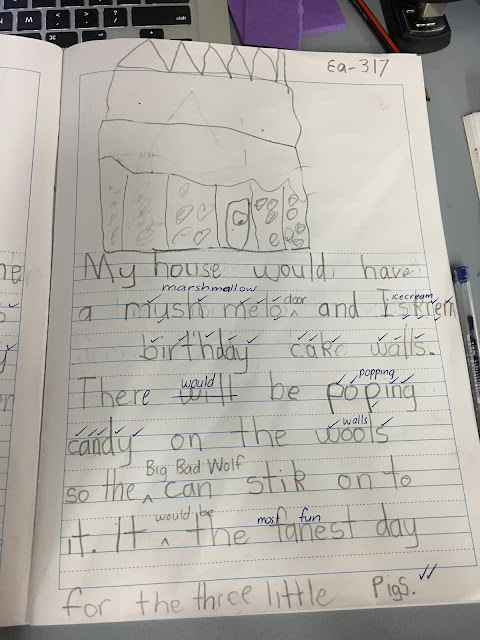 Ea-317
My house would have
marshmallow door icecream
a mush melo ^ and Iskrem
birthday cake walls.
would popping
There will be poping
walls
candy on the wools
Big Bad Wolf
so the ^ can stik on to
would be most fun
it. It ^ the fanest day
for the three little Pigs.